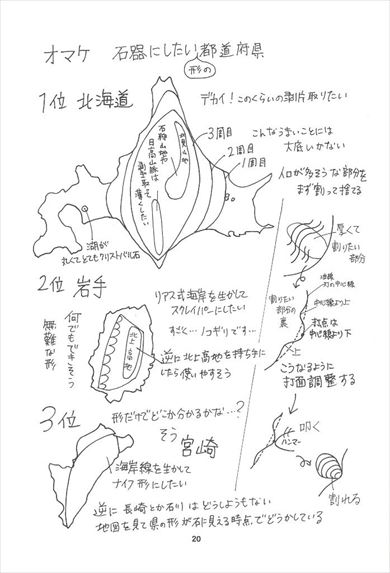 オマケ 石器にしたい形の都道府県
1位 北海道
デカイ!このくらいの剥片取りたい
3周目
2周目
1周目
こんなうまいことには
大底いかない
人口が多そうな部分を
まず割って捨てる
石狩山地や
日高山脈は
薄くしたい
湖が
丸くてとてもクリストバル石
厚くて
割りたい
部分
割りたい
部分の
裏
中心線より上
打点は
中心線より下
上
こうなるように
打面調整する
叩く
ハンマー
割れる
2位 岩手
リアス式海岸を生かして
スクレイパーにしたい
すごく…ノコギリです…
何でもできそう
無難な形
北上高地
逆に北上高地を持ち手に
したら使いやすそう
3位
形だけでどこか分かるかな…?
そう
宮崎
海岸線を生かして
ナイフ形にしたい
逆に長崎とか石川はどうしようもない
地図を見て県の形が石に見える時点でどうかしている
20